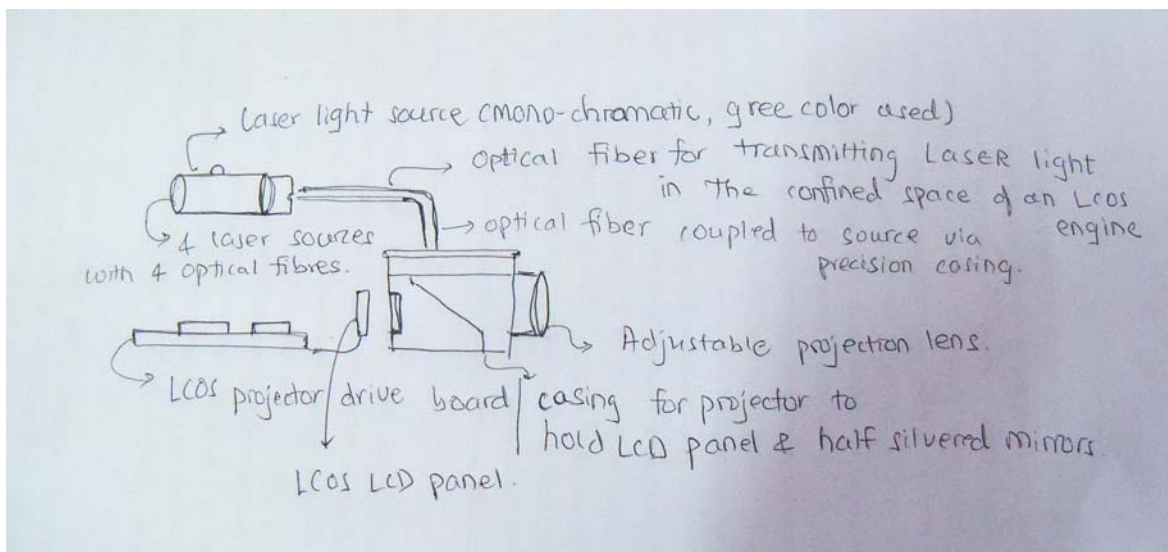 Laser light source (mono-chromatic, gree color used)
optical fiber for transmitting LaseR light
in the confined space of an Lcos
engine
→ optical fiber coupled to source via
precision casing.
4 laser sources
with 4 optical fibres.
Adjustable projection lens.
LCOS projector drive board
casing for projector to
hold LCD panel & half silvered mirrors.
LCOS LCD panel.